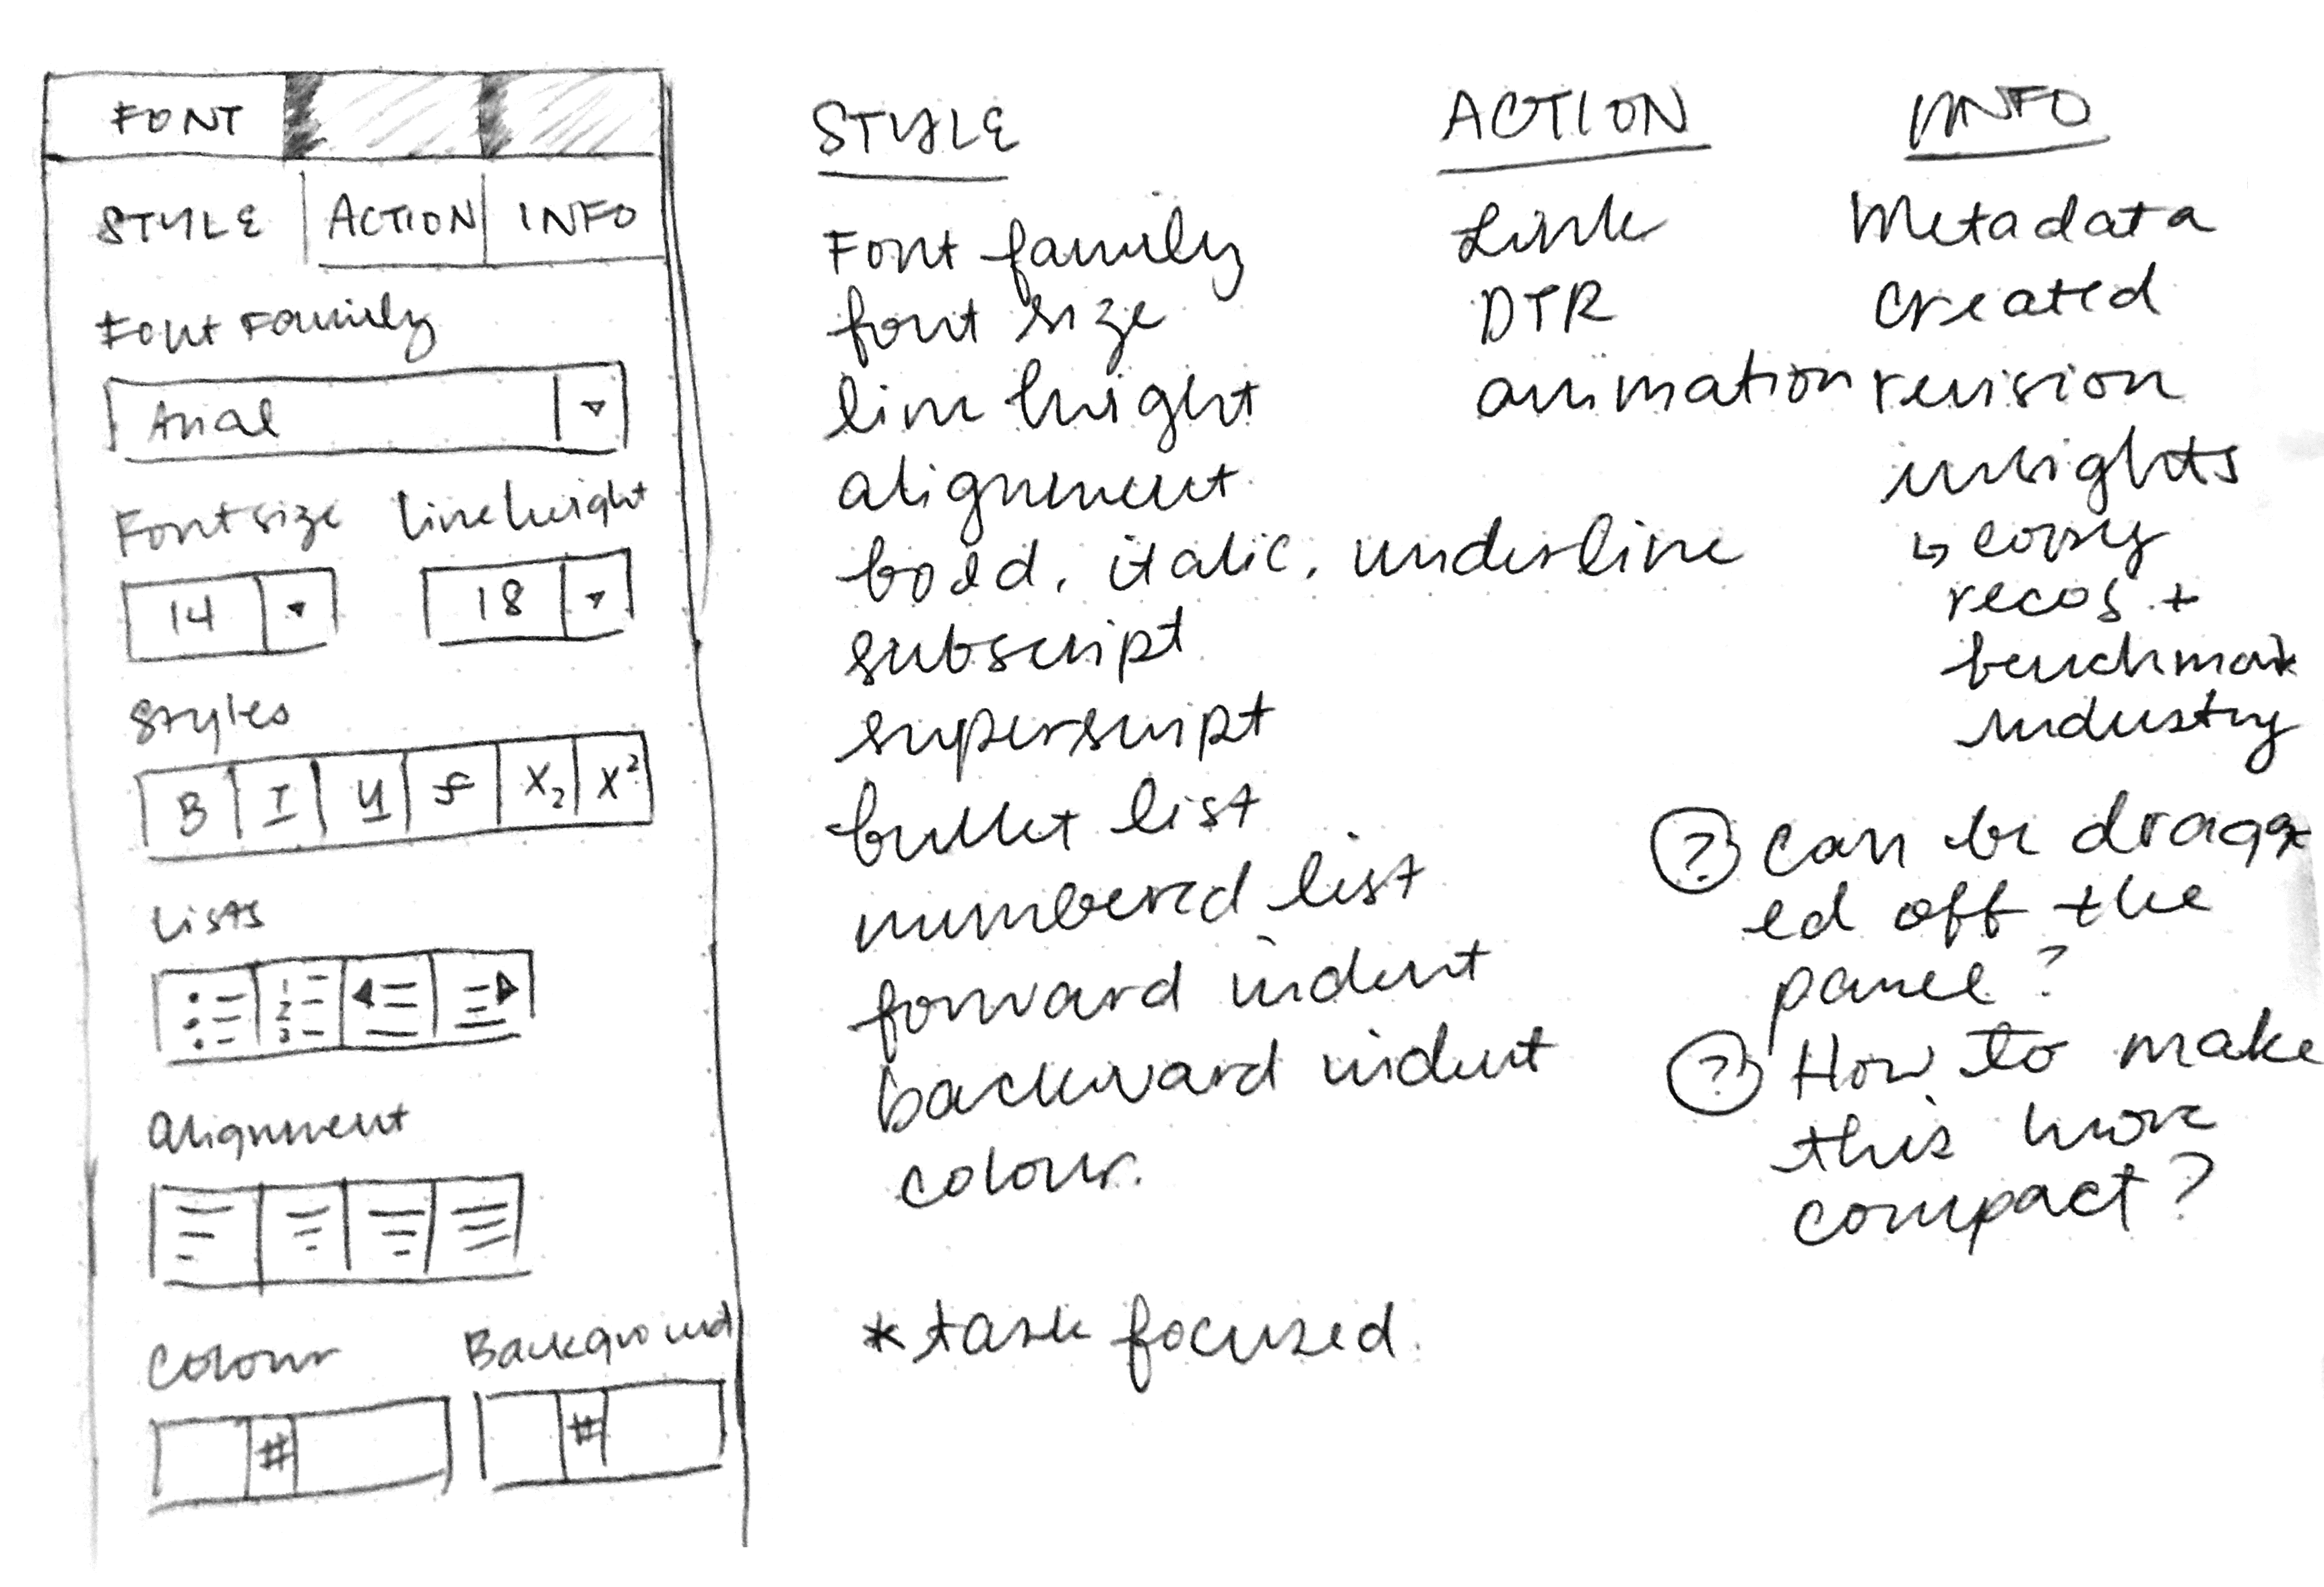 FONT
STYLE ACTION INFO
Font Family
Arial
Font size line height
14 18
Styles
B I U S X₂ X²
Lists
1
2
3
alignment
Colour Background
# #
STYLE
Font family
font size
line height
alignment
bold, italic, underline
subscript
superscript
bullet list
numbered list
forward indent
backward indent
colour.
*task focused.
ACTION
Link
DTR
animation
INFO
Metadata
created
revision
insights
recos +
benchmark
industry
? Can be dragg
ed off the
panel?
? How to make
this more
compact?